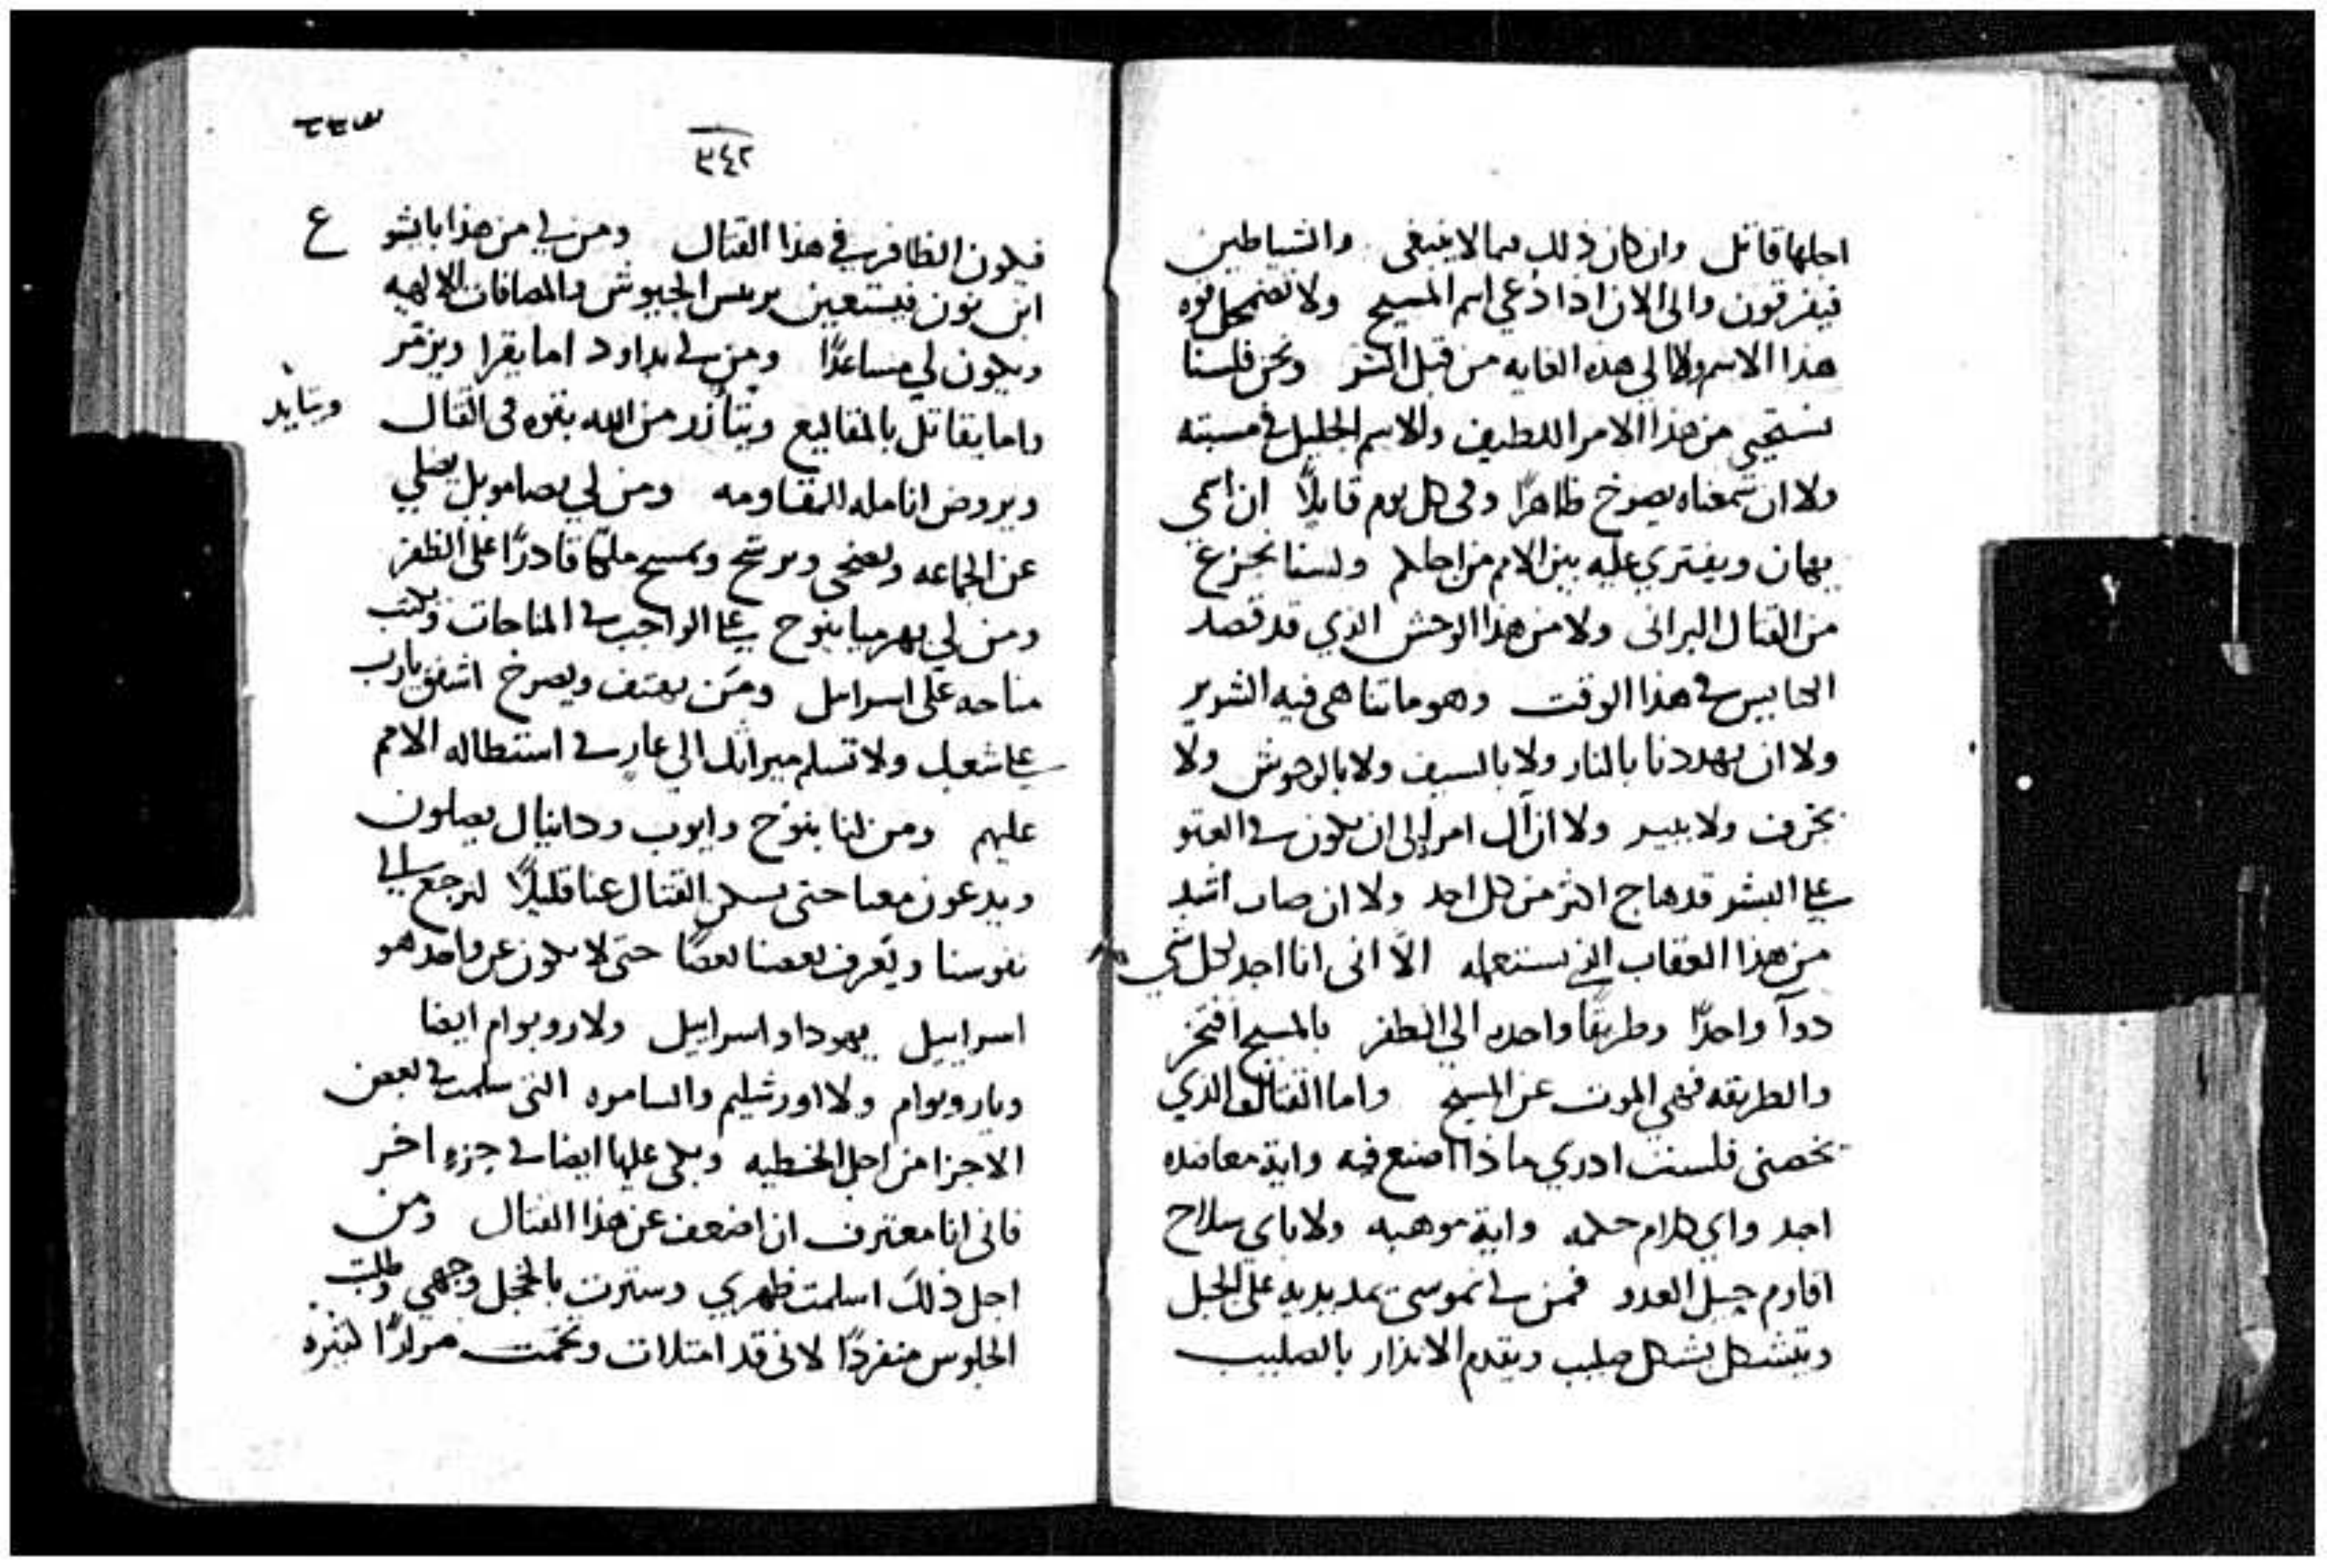 اجلها قاتل وان كان ذلك مما لا ينبغي والشياطين
فيفرقون والى الان اذا دعي اسم المسيح ولا تضمحل قوه
هذا الاسم ولا الى هذه الغايه من قبل الشر ونحن فلسنا
نستحيي من هذا الامر اللطيف والاسم الجليل في مسبته
ولا ان سمعناه يصرخ ظاهرًا وفى كل يوم قايلاً ان اسمي
يهان ويفتري عليه بين الامم من اجلكم ولسنا نجزع
من القتال البرانى ولا من هذا الوحش الذي قد قصد
الكنايس في هذا الوقت وهو ما تناهى فيه الشرير
ولا ان يهددنا بالنار ولا بالسيف ولا بالوحوش ولا
بجرف ولا ببير ولا ان آل امره الى ان يكون في العتو
على البشر قد هاج اكثر من كل احد ولا ان صاب اشد
من هذا العقاب الذي نستعمله الاّ انى انا اجد لكل شي
دوآ واحدًا وطريقًا واحده الى الظفر بالمسيح افتخر
والطريقه فهي الموت عن المسيح واما القتال الذي
يخصنى فلست ادري ماذا اصنع فيه واية معاضده
اجد واي كلام حكمه واية موهبه ولا باي سلاح
اقاوم حيل العدو فمن لي انموسى يمد يديه على الجبل
ويتشكل بشكل صليب ويقدم الانذار بالصليب
٣٤٢
فيكون الظافر في هذا القتال ومن لي من هذا بايشو ع
ابن نون فيستعين بريس الجيوش والمصافات الالهيه
ويكون لي مساعدًا ومن لي بداود اما يقرا ويزمر
واما يقاتل بالمقاليع ويتأزر من الله بقوه فى القتال ويتايد
ويروض انامله للمقاومه ومن لي بصامويل يصلي
عن الجماعه ويضحى ويرشح ويمسح ملكًا قادرًا على الظفر
ومن لي بهرميا ينوح على الواجب في المناحات ويكتب
مناحه على اسرايل ومَن يهتف ويصرخ اشفق يا رب
على شعبك ولا تسلم ميراثك الى عارٍ في استطاله الامم
عليهم ومن لنا بنوح وايوب ودانيال يصلون
ويدعون معنا حتى يسكن القتال عنا قليلاً لنرجع الى
نفوسنا ويَعرف بعضنا بعضًا حتى لا يكون عن واحد هو
اسراييل يهودا واسراييل ولا روبوام ايضا
وياروبوام ولا اورشليم والسامره التى سلمت في بعض
الاجزا من اجل الخطيه وبكى عليها ايضا في جزءٍ اخر
فانى انا معترف ان اضعف عن هذا القتال ومن
اجل ذلك اسلمت ظهري وسترت بالخجل وجهي وطلبت
الجلوس منفردًا لانى قد امتلات وتخمت مرارًا كثيره